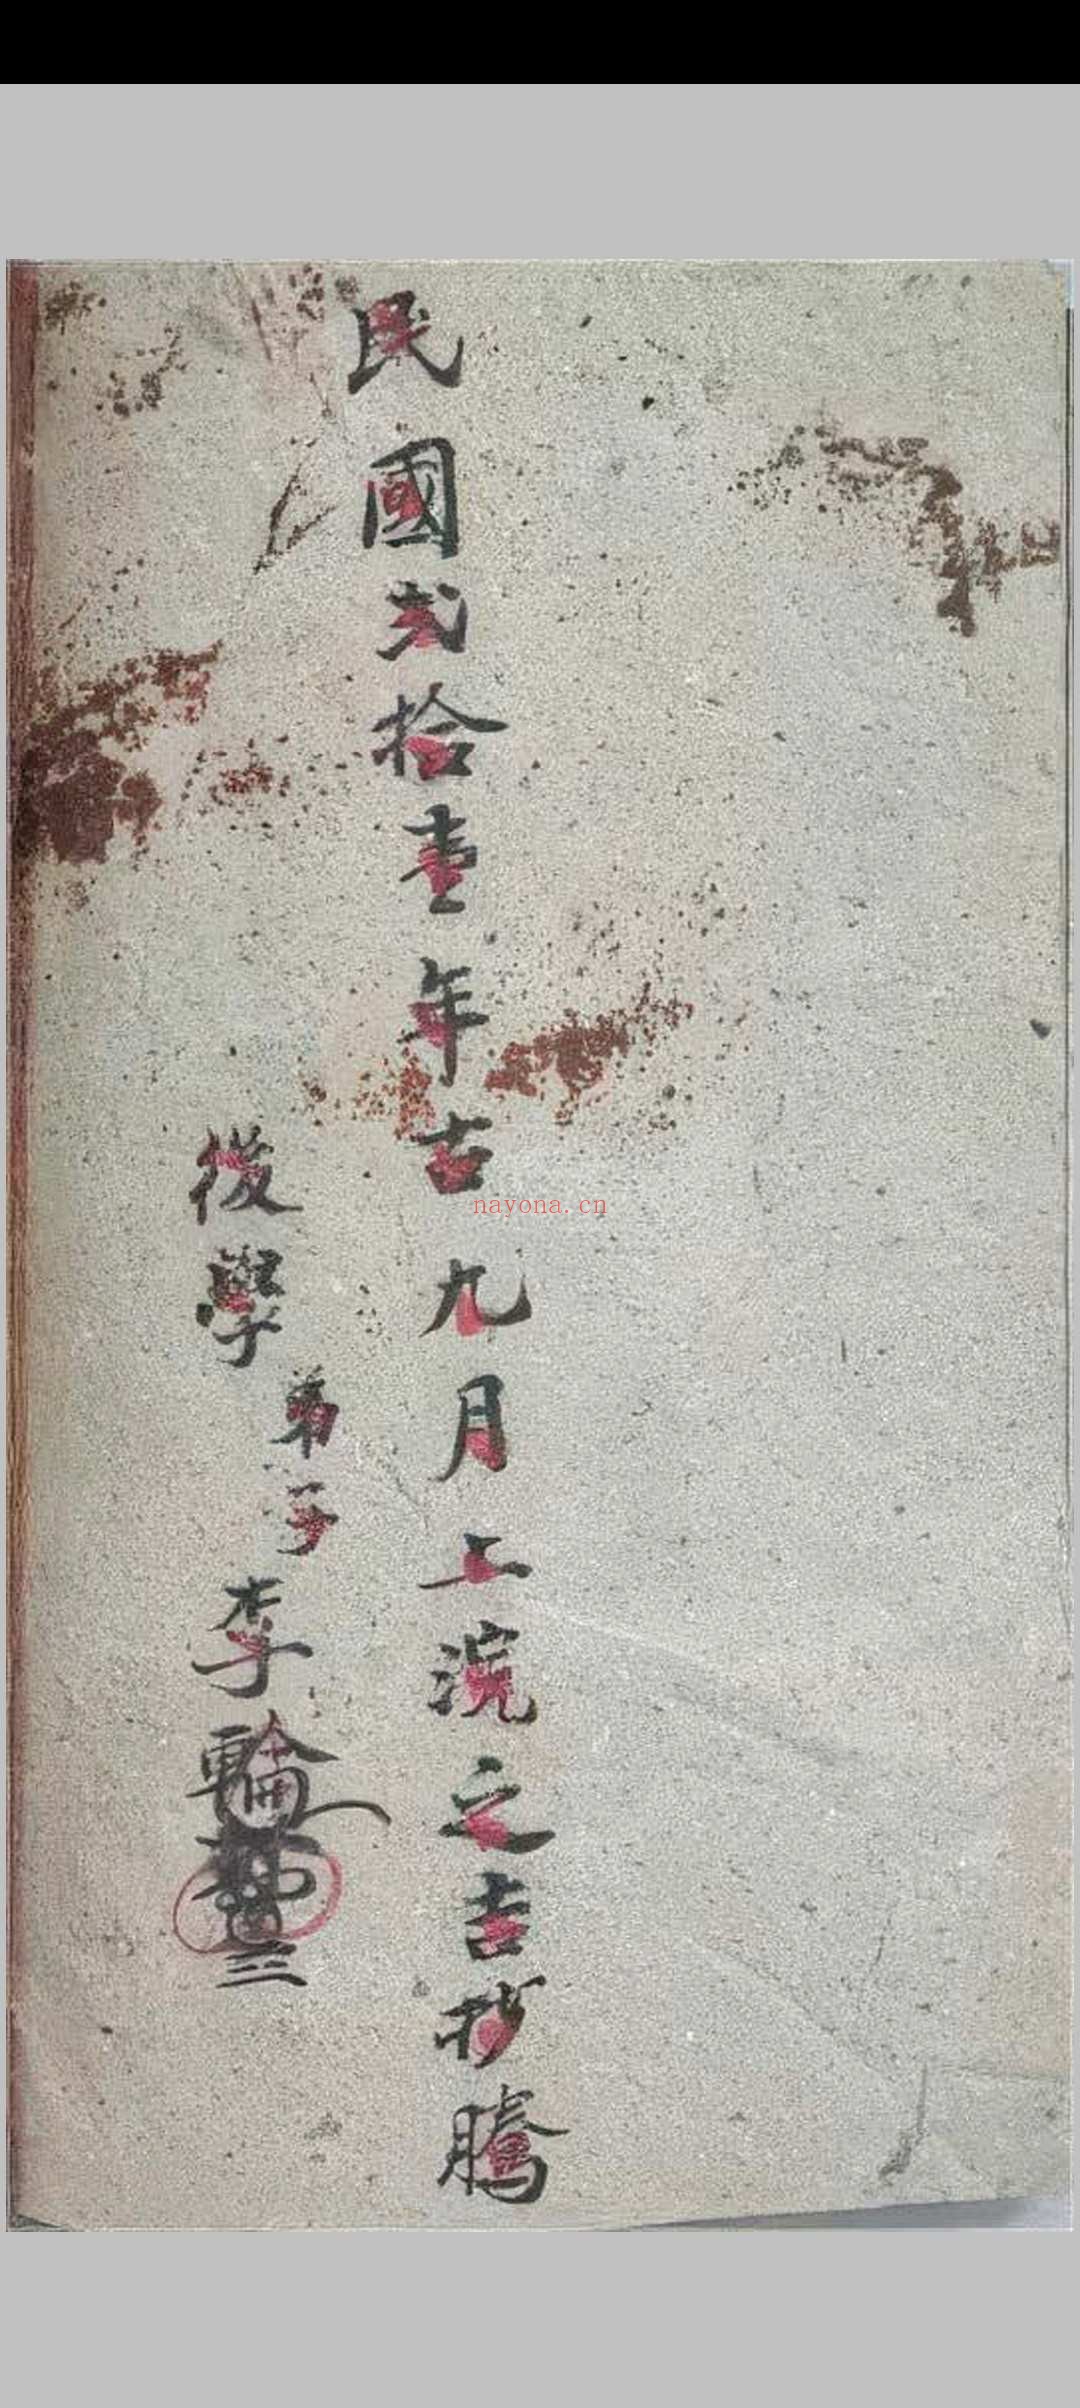 民國弍拾壹年古九月上浣之吉抄騰
後學弟子李輪
nayona.cn